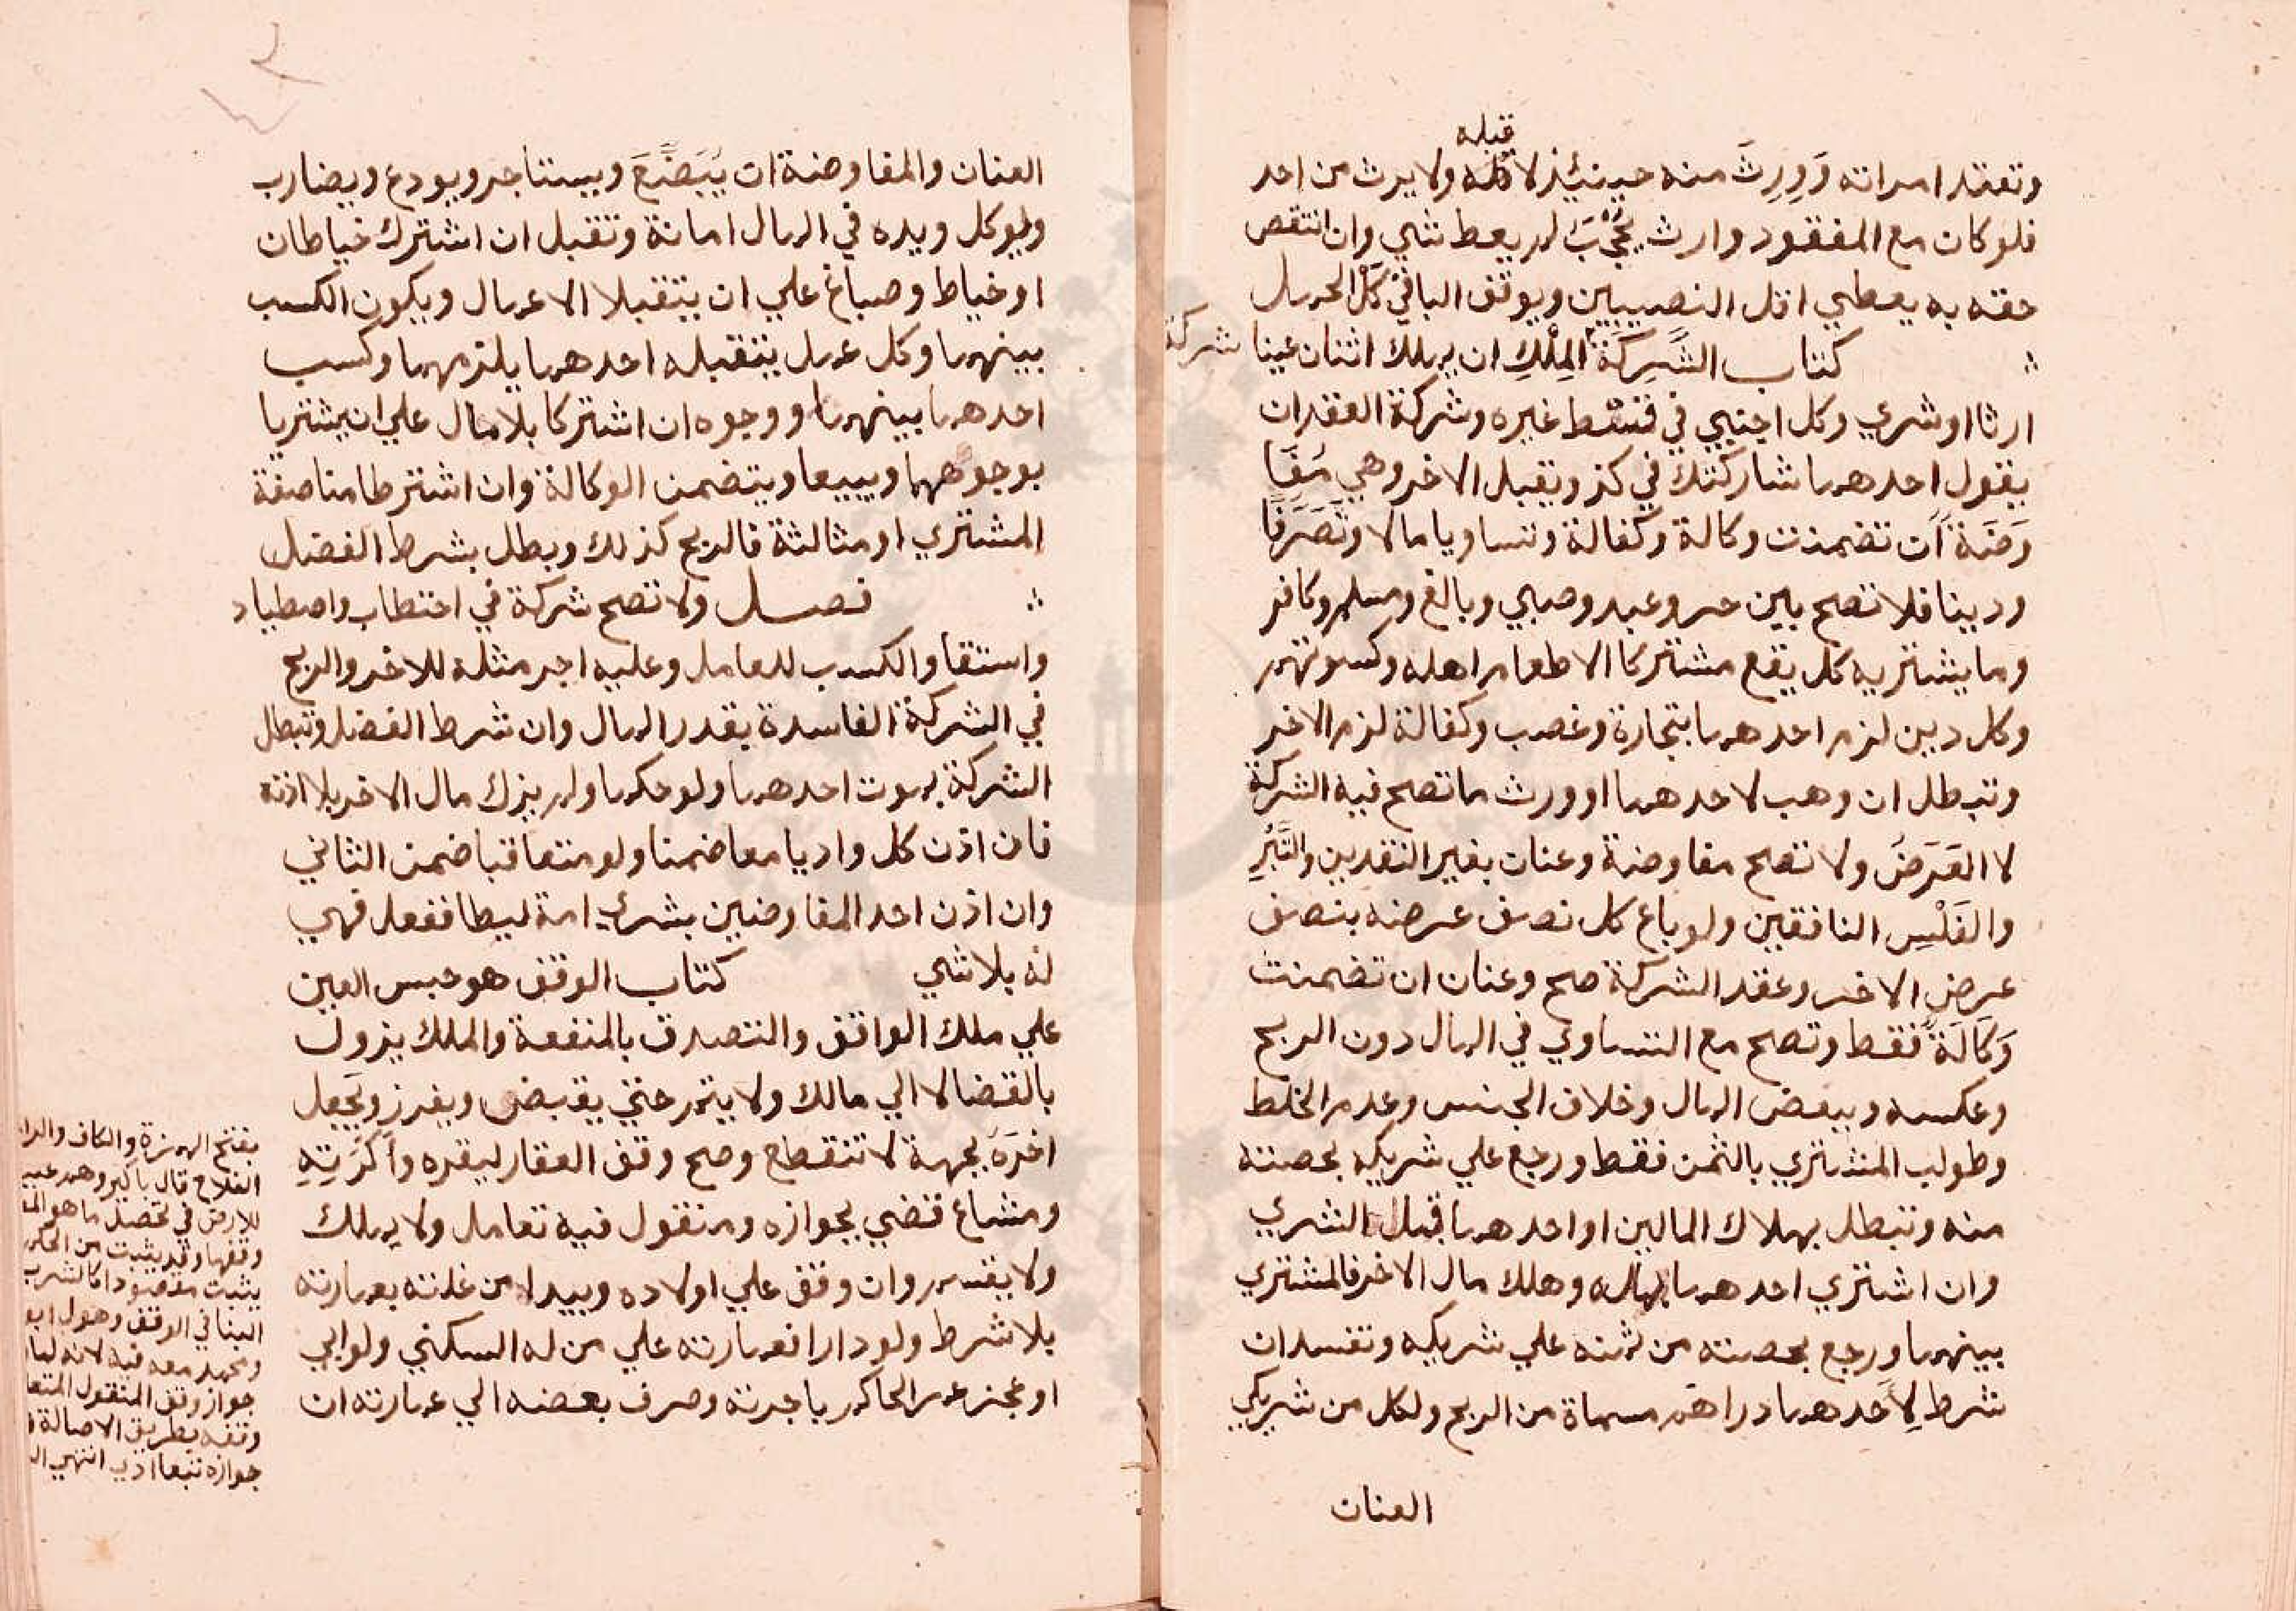 قبله
وتعتد امراته وَوِرِثَ منه حينئذ لا قبله ولا يرث من احد
فلو كان مع المفقود وارث يُحْجَبُ لم يعط شي وان انتقص
حقه به يعطي اقل النصيبين ويوقف الباقي كالحمل
كتاب الشَّرِكَة المِلْكِ ان يملك اثنان عينا شركة
ارثا او شري وكل اجنبي في قسط غيره وشركة العقد ان
يقول احدهما شاركتك في كذ ويقبل الاخر وهي مفا
وَضَة اَن تضمنت وكالة وكفالة وتساويا مالا وتَصَرفًا
ودينا فلا تصح بين حر وعبد وصبي وبالغ ومسلم وكافر
وما يشتريه كل يقع مشتركا الا طعام اهله وكسوتهم
وكل دين لزم احدهما بتجارة وغصب وكفالة لزم الاخر
وتبطل ان وهب لاحدهما او ورث ما تصح فيه الشركة
لا العَرَضُ ولا تصح مفاوضة وعنان بغير النقدين والتِّبْرِ
والفَلْسِ النافقين ولو باع كل نصف عرضه بنصف
عرض الاخر وعقد الشركة صح وعنان ان تضمنت
وَكَالَةً فقط وتصح مع التساوي في المال دون الربح
وعكسه وببعض المال وخلاف الجنس وعدم الخلط
وطولب المشتري بالثمن فقط ورجع علي شريكه بحصته
منه وتبطل بهلاك المالين او احدهما قبل الشري
وان اشتري احدهما بماله وهلك مال الاخر فالمشتري
بينهما ورجع بحصته من ثمنه علي شريكه وتفسد ان
شرط لِاَحدهما دراهم مسماة من الربح ولكل من شريكي
العنان
العنان والمفاوضة ان يُبَضِّعَ ويستاجر ويودع ويضارب
ويوكل ويده في المال امانة وتقبل ان اشترك خياطان
او خياط وصباغ علي ان يتقبلا الاعمال ويكون الكسب
بينهما وكل عمل يتقبله احدهما يلزمهما وكسب
احدهما بينهما ووجوه ان اشتركا بلا مال علي ان يشتريا
بوجوههما ويبيعا ويتضمن الوكالة وان اشترطا مناصفة
المشتري او مثالثة فالربح كذلك وبطل بشرط الفضل
فصل ولا تصح شركة في احتطاب واصطياد
واستقا والكسب للعامل وعليه اجر مثله للاخر والربح
في الشركة الفاسدة بقدر المال وان شرط الفضل وتبطل
الشركة بموت احدهما ولو حكما ولم يزك مال الاخر بلا اذنه
فان اذن كل واديا معا ضمنا ولو متعاقبا ضمن الثاني
وان اذن احد المفاوضين بشرك امة ليطا ففعل فهي
له بلا شي كتاب الوقف هو حبس العين
علي ملك الواقف والتصدق بالمنفعة والملك يزول
بالقضا لا الي مالك ولا يتم حتي يقبض ويفرز ويَجعل
اخرَهُ لجهة لا تنقطع وصح وقف العقار لبقره وأَكَرَتِهِ
ومشاع قضي بجوازه ومنقول فيه تعامل ولا يملك
ولا يقسم وان وقف علي اولاده ويبدا من غلته بعمارته
بلا شرط ولو دارا فعمارته علي من له السكني ولو ابي
او عجز عمر الحاكم باجرته وصرف بعضه الي عمارته ان
بفتح الهمزة والكاف والرا
الفلاح قال باكير وهم عبيد
للارض في تحصيل ما هو الم
وقفها وقد يثبت من الحكم
يثبت مقصودا كالشرب
البنا في الوقف وهول ابو
ومحمد معه فيه لانه لما
جواز وقف المنقول المتعا
وقفه بطريق الاصالة
جوازه تبعا انتهي